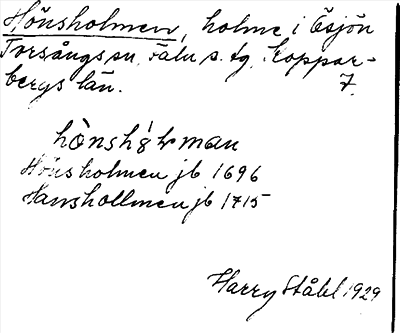 Hönsholmen, holme i Ösjön
Torsångs sn. Falu s. tg. Koppar-
bergs län. 7.
Hönsholmen jb 1696
Hanshollmen jb 1715
Harry Ståhl 1929